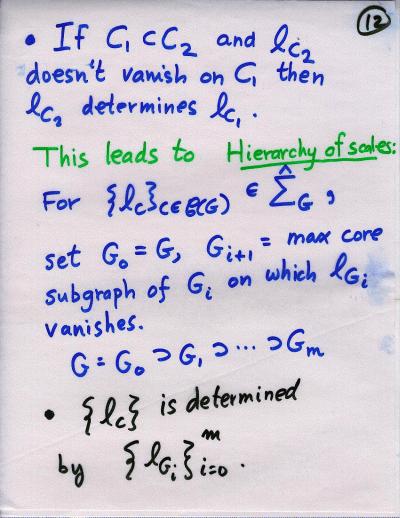 12
• If C₁ ⊂ C₂ and ℓ_C₂
doesn't vanish on C₁ then
ℓ_C₂ determines ℓ_C₁.
This leads to Hierarchy of scales:
For {ℓ_C}_{C∈𝓔(G)} ∈ Σ̂_G,
set G₀ = G, G_{i+1} = max core
subgraph of G_i on which ℓ_{G_i}
vanishes.
G = G₀ ⊃ G₁ ⊃ ⋯ ⊃ G_m
• {ℓ_C} is determined
by {ℓ_{G_i}}_{i=0}^m.